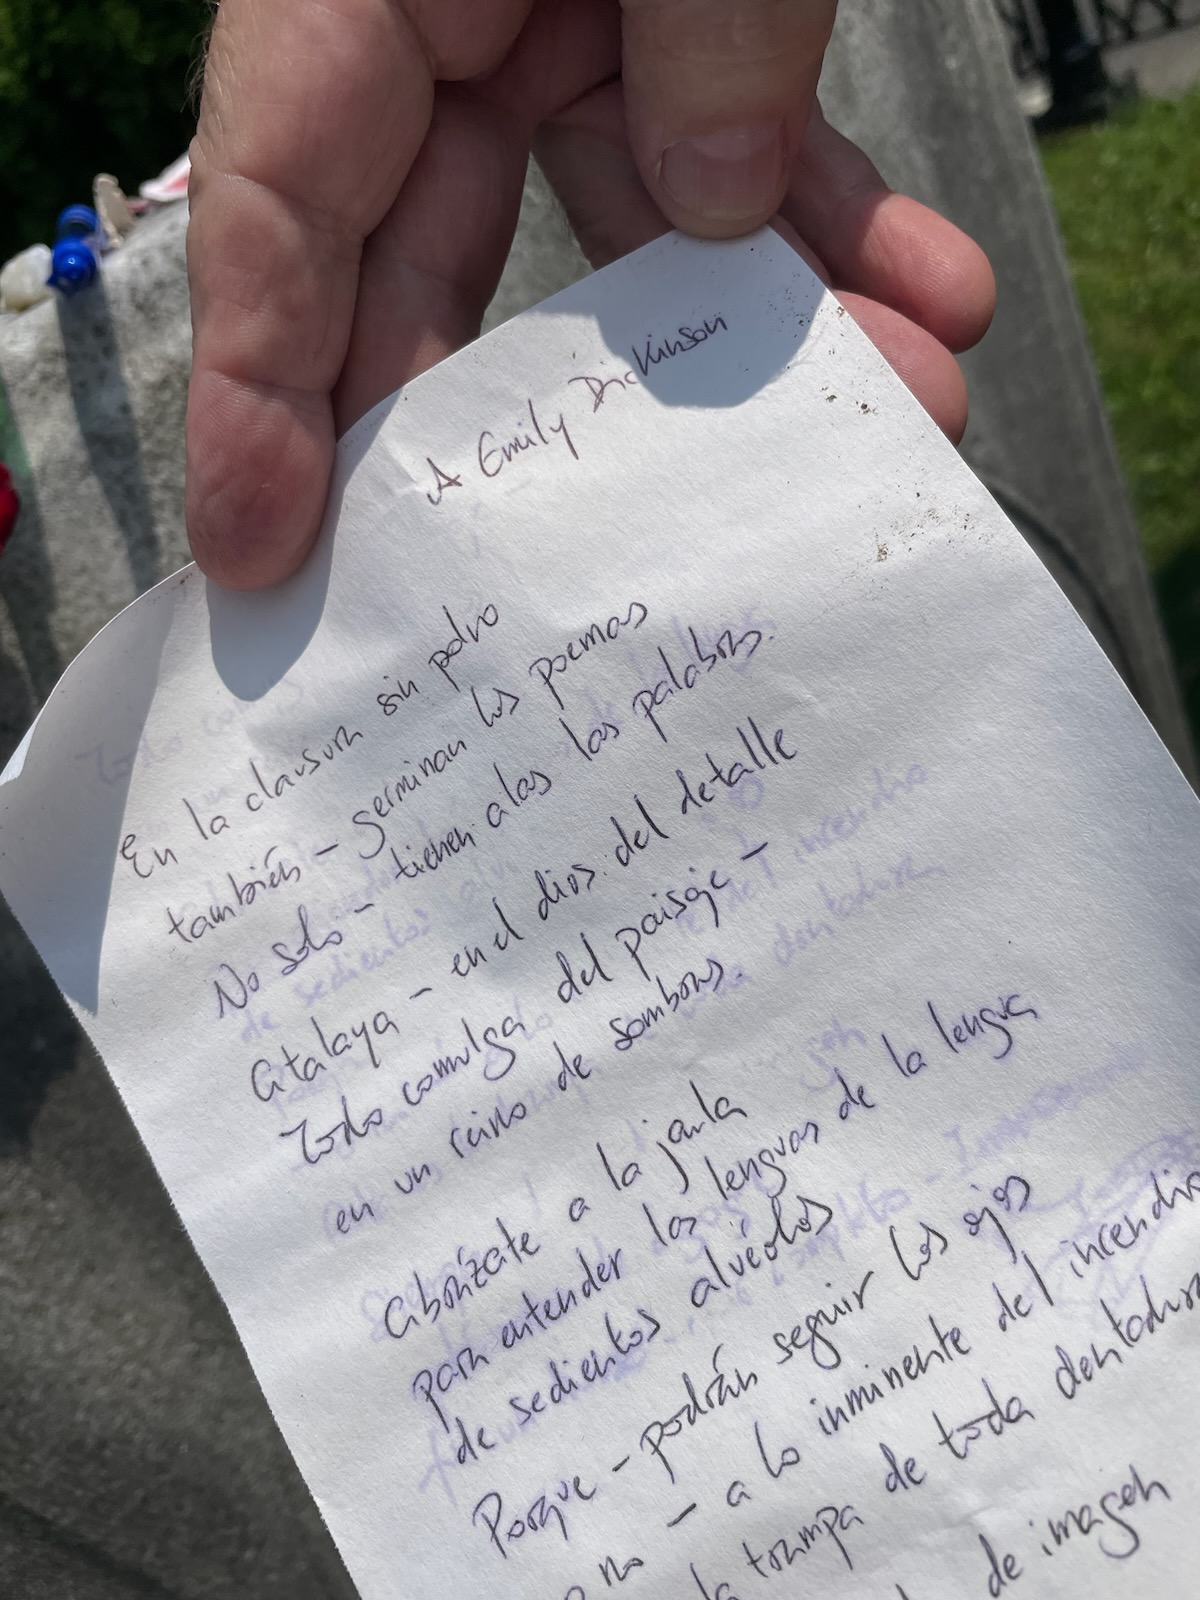 A Emily Dickinson
En la clausura sin polvo
también – germinan los poemas
No solo – tienen alas las palabras.
Atalaya – en el dios del detalle
Todo comulga del paisaje –
en un reino de sombras
abrázate a la jaula
para entender las lenguas de la lengua
de sedientos alvéolos
Porque – podrán seguir los ojos
o no – a lo inminente del incendio
la trampa de toda dentadura
de imagen